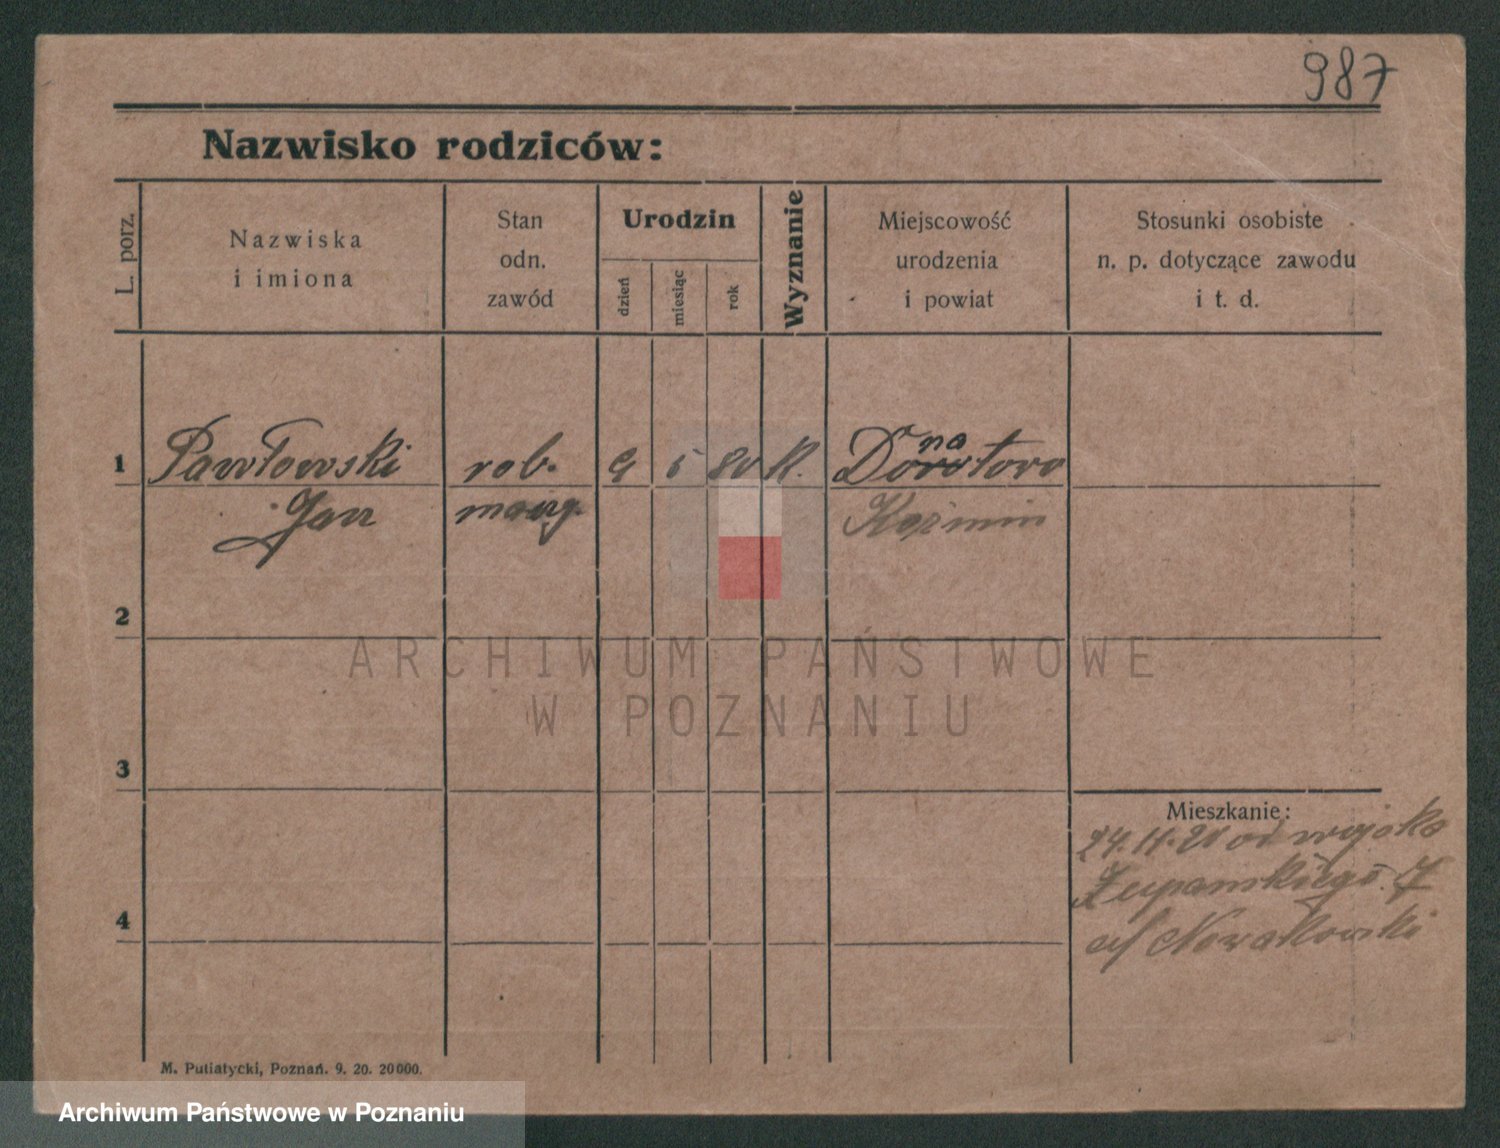 987
Nazwisko rodziców:
L. porz.
Nazwiska
i imiona
Stan
odn.
zawód
Urodzin
dzień
miesiąc
rok
Wyznanie
Miejscowość
urodzenia
i powiat
Stosunki osobiste
n. p. dotyczące zawodu
i t. d.
1 Pawłowski rob. 9 5 80 K.
Jan
Koźmin
2
3
4
Mieszkanie:
24. 11. 20 od wojska
Żupanskiego 7
Nowakowski
M. Putiatycki, Poznań. 9. 20. 20000.
ARCHIWUM PAŃSTWOWE
W POZNANIU
Archiwum Państwowe w Poznaniu